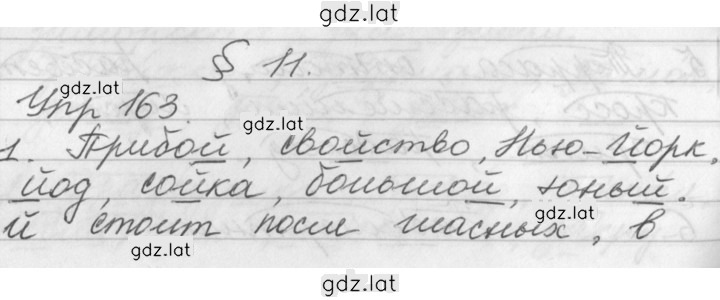 gdz.lat
§ 11.
gdz.lat
Упр 163.
gdz.lat
1. Прибой, свойство, Нью-Йорк,
йод, сойка, большой, юный.
gdz.lat
й стоит после гласных, в
gdz.lat
gdz.lat